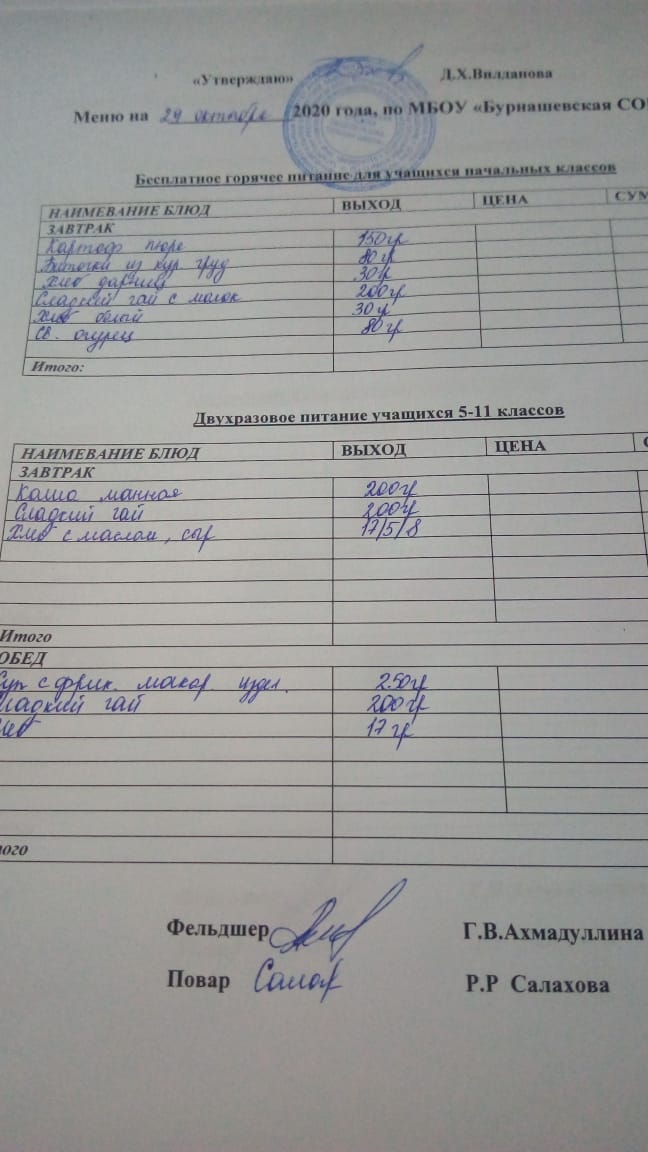 «Утверждаю» Д.Х.Вилданова
Меню на 29 октября 2020 года, по МБОУ «Бурнашевская СО
Бесплатное горячее питание для учащихся начальных классов
НАИМЕВАНИЕ БЛЮД ВЫХОД ЦЕНА СУМ
ЗАВТРАК
Картоф пюре 150гр
Биточки из кур груд 80гр
Хлеб дарниц 30гр
Сладкий чай с молок 200гр
Хлеб белый 30гр
Св. огурец 80гр
Итого:
Двухразовое питание учащихся 5-11 классов
НАИМЕВАНИЕ БЛЮД ВЫХОД ЦЕНА С
ЗАВТРАК
Каша манная 200гр
Сладкий чай 200гр
Хлеб с маслом, сыр 17/5/8
Итого
ОБЕД
Суп с фрик. макар. издел. 250гр
Сладкий чай 200гр
Хлеб 17гр
ого
Фельдшер Г.В.Ахмадуллина
Повар Салах Р.Р Салахова